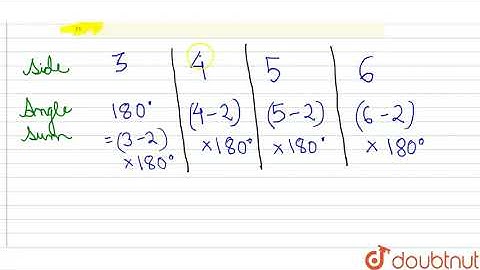 side 3 4 5 6
Angle 180° (4-2) (5-2) (6-2)
sum =(3-2) ×180° ×180° ×180°
×180°
doubtnut